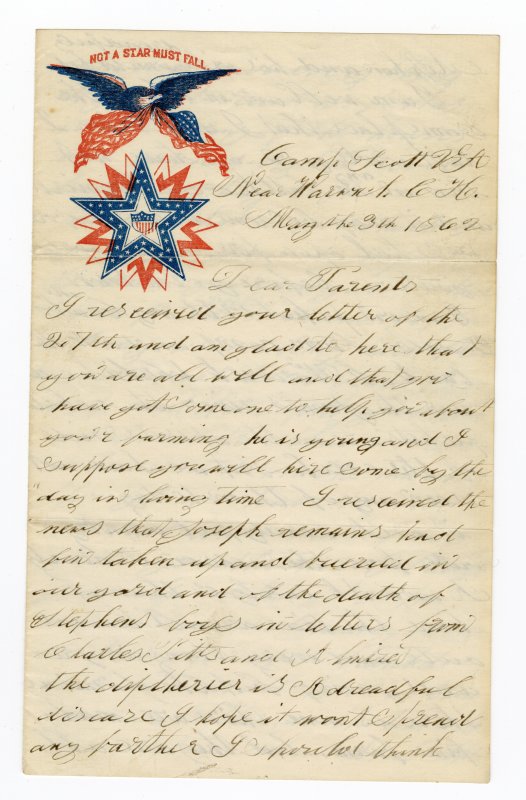 NOT A STAR MUST FALL.
Camp Scott Va
Near Warwick C. H.
May the 3th 1862
Dear Parents
I resceived your letter of the
27th and am glad to here that
you are all well and that you
have got some one to help you about
your farming he is young and I
suppose you will hire some by the
day in hoing time I resceived the
news that Joseph remains had
bin taken up and buerid in
our yard and of the death of
Stephens boys in letters from
Charles and
the diptherier is A dreadful
disease I hope it wont spread
any farther I should think